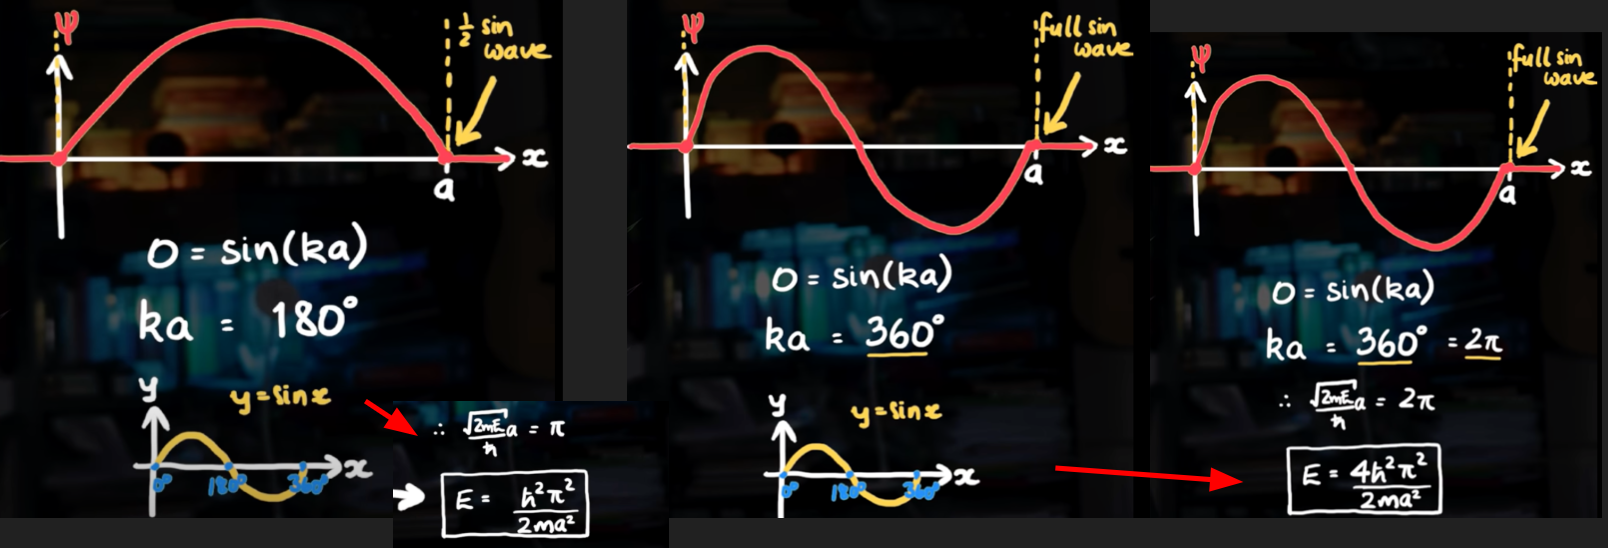 ψ
½ sin
wave
x
a
0 = sin(ka)
ka = 180°
y
y=sinx
x
0° 180° 360°
∴ √2mE/ħ a = π
E = ħ²π²/2ma²
ψ
full sin
wave
x
a
0 = sin(ka)
ka = 360°
y
y=sinx
x
0° 180° 360°
ψ
full sin
wave
x
a
0 = sin(ka)
ka = 360° = 2π
∴ √2mE/ħ a = 2π
E = 4ħ²π²/2ma²